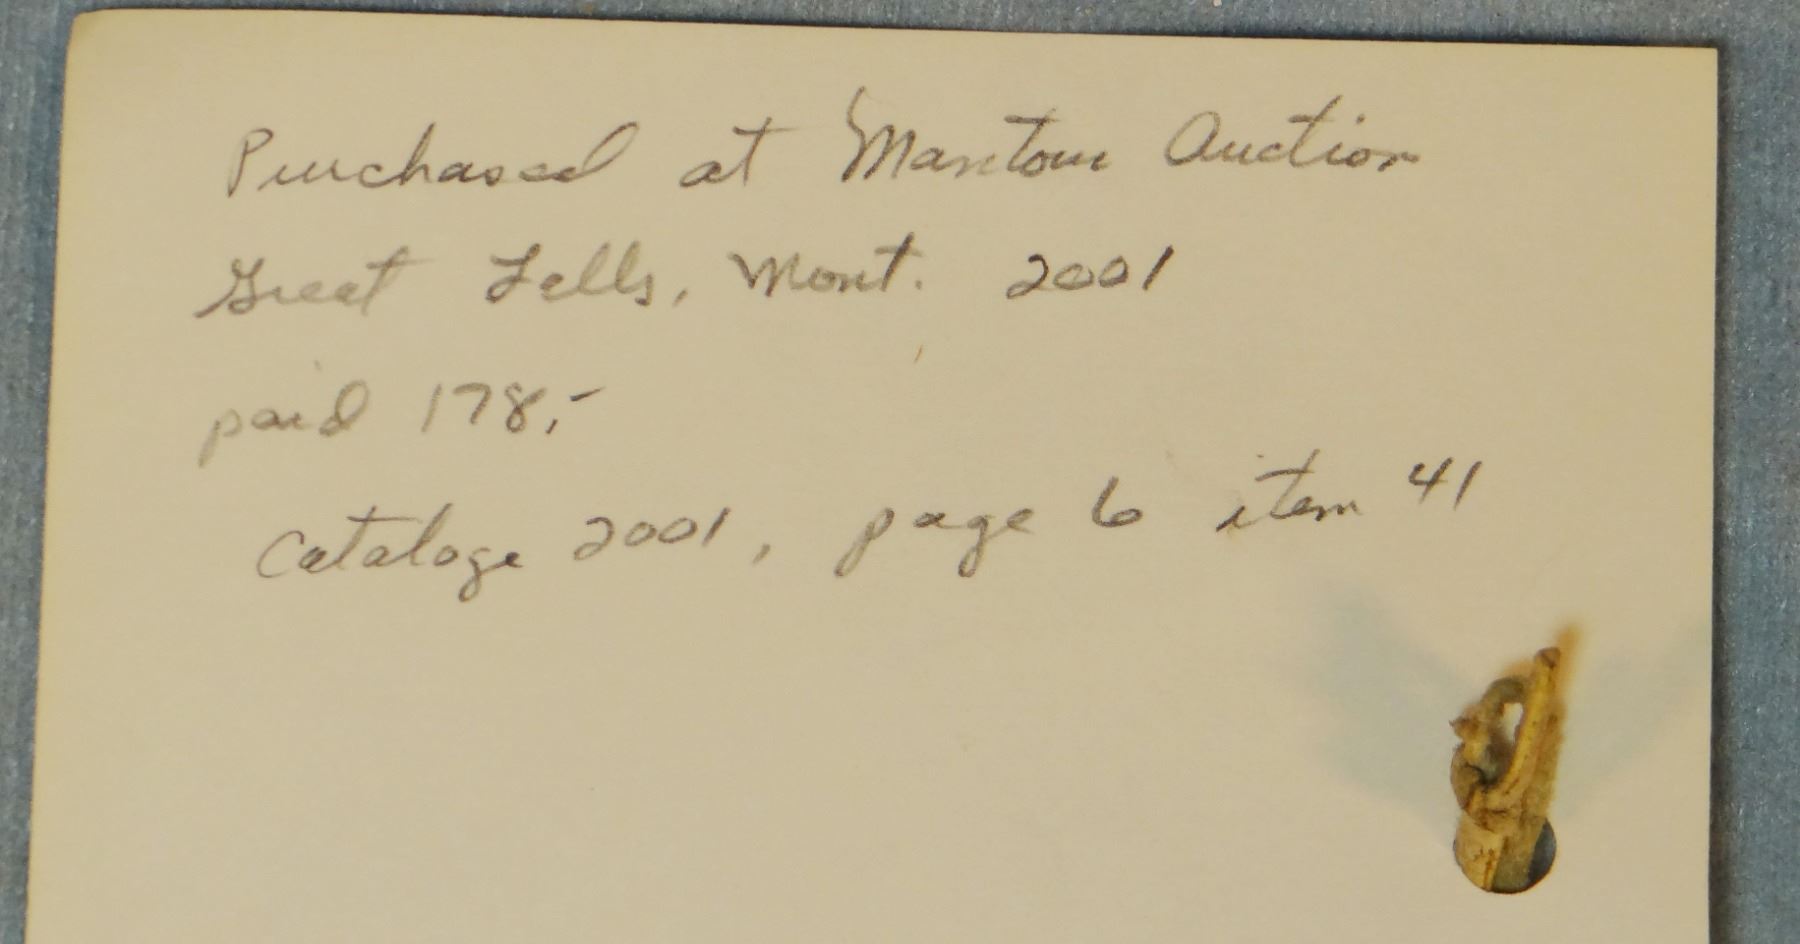 Purchased at Manitou Auction
Great Falls, Mont. 2001
paid 178,-
Cataloge 2001, page 6 item 41